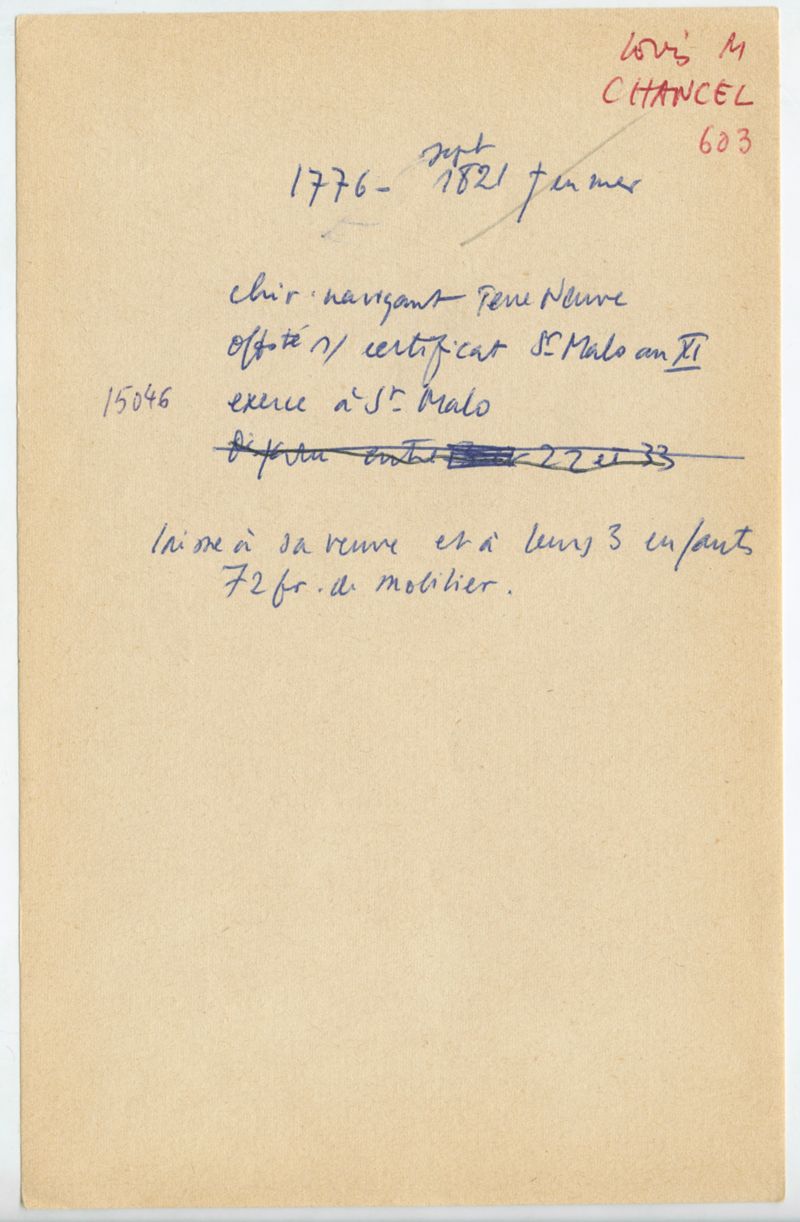 Louis M
CHANCEL
603
sept
1776 - 1821 † en mer
chir. navigant Terre Neuve
offsté s/ certificat St Malo an XI
15046 exerce à St Malo
Disparu entre 22 et 33
laisse à sa veuve et à leurs 3 enfants
72 fr. de mobilier.